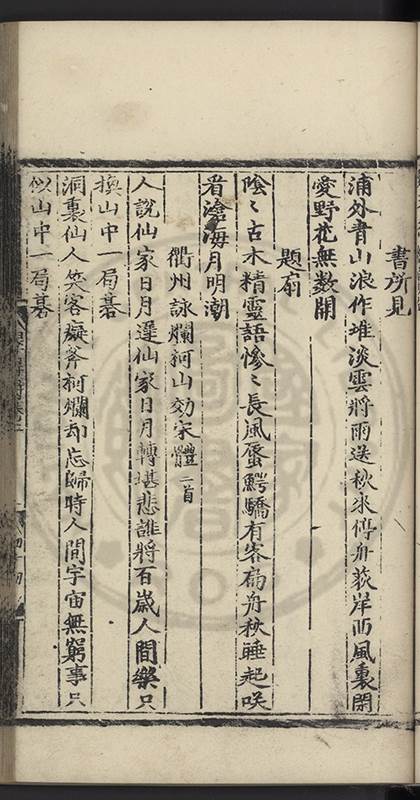 書所見
浦外青山浪作堆淡雲將雨送秋來停舟荻岸西風裏閑
愛野花無數開
題扇
陰〻古木精靈語慘〻長風蜃鰐驕有客扁舟秋睡起咲
看滄海月明潮
衢州詠爛柯山効宋體二首
人說仙家日月遲仙家日月轉堪悲誰將百歲人間樂只
換山中一局碁
洞裏仙人笑客癡斧柯爛却忘歸時人間宇宙無窮事只
似山中一局碁